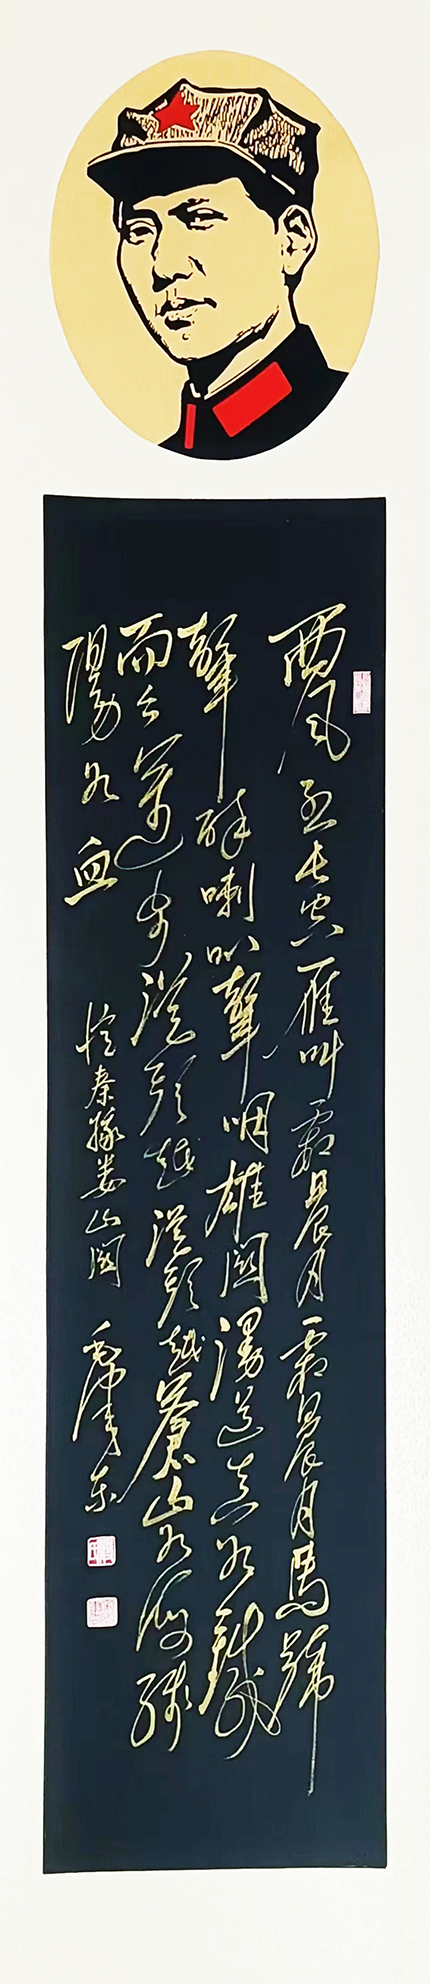 西風烈長空雁叫霜晨月霜晨月馬蹄
聲碎喇叭聲咽雄關漫道真如鐵
而今邁步從頭越從頭越蒼山如海殘
陽如血 憶秦娥婁山關 毛澤東